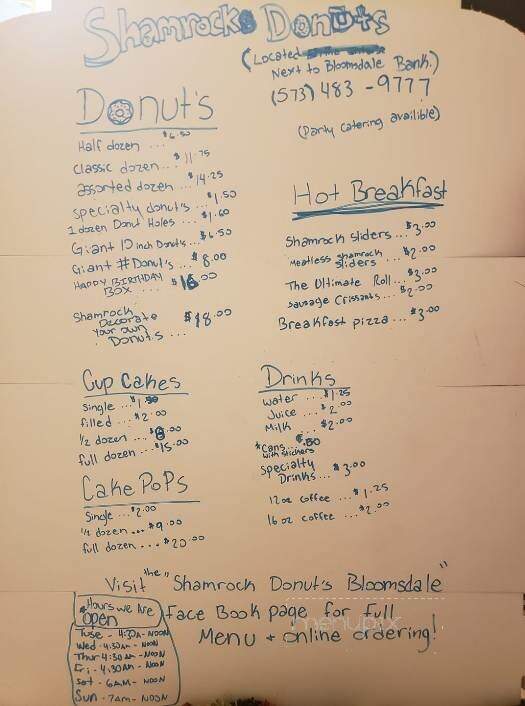 Shamrock Donuts
(Located
Next to Bloomsdale Bank.)
(573) 483-9777
(Party catering availible)
Donut's
Half dozen ... $6.50
Classic dozen... $11.75
assorted dozen... $14.25
specialty donut's... $1.50
1 dozen Donut Holes ... $1.60
Giant 10 inch Donuts... $6.50
Giant # Donut's... $8.00
HAPPY BIRTHDAY
BOX .... $16.00
Shamrock
Decorate
your own
Donuts... $18.00
Hot Breakfast
Shamrock sliders... $3.00
Meatless shamrock
sliders... $2.00
The Ultimate Roll... $3.00
sausage Crissants... $2.00
Breakfast pizza... $3.00
Cup Cakes
Single ...
filled ... $2.00
1/2 dozen ...
full dozen ... $15.00
Cake Pops
Single ... $2.00
1/2 dozen... $9.00
full dozen ... $20.00
Drinks
Water ... $1.25
Juice ... $2.00
Milk ... $2.00
*Cans... $.50
with stickers
specialty
Drinks... $3.00
12oz coffee ... $1.25
16 oz coffee ... $2.00
Visit the "Shamrock Donut's Bloomsdale"
Face Book page for full
Menu + online ordering!
Hours we Are
open
Tuse - 4:30A - NOON
Wed - 4:30AM - NOON
Thur 4:30AM - NOON
Fri - 4:30AM - NOON
Sat - 6AM - NOON
Sun - 7AM - NOON
menupix